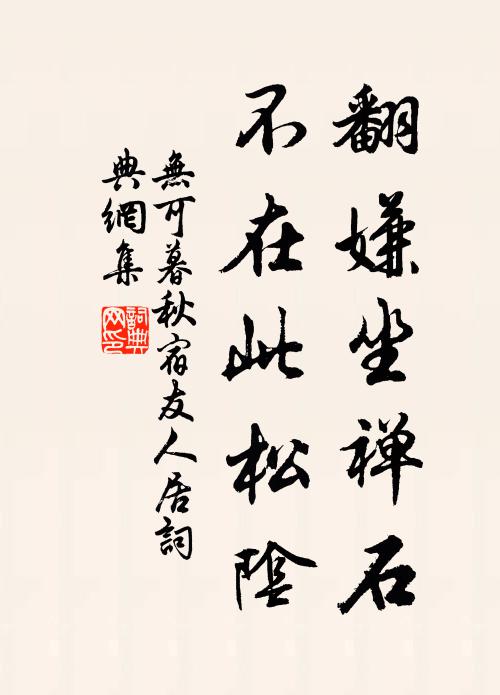 翻嫌坐禅石
不在此松陰
無可暮秋宿友人居詞
典網集
詞典网印